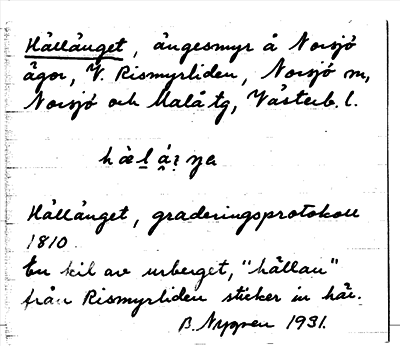 Hällänget, ängesmyr å Norsjö
ägor, V. Rismyrliden, Norsjö sn,
Norsjö och Malå tg, Västerb. l.
Hällänget, graderingsprotokoll
1810.
En kil av urberget, "hällan"
från Rismyrliden sticker in här.
B. Nygren 1931.